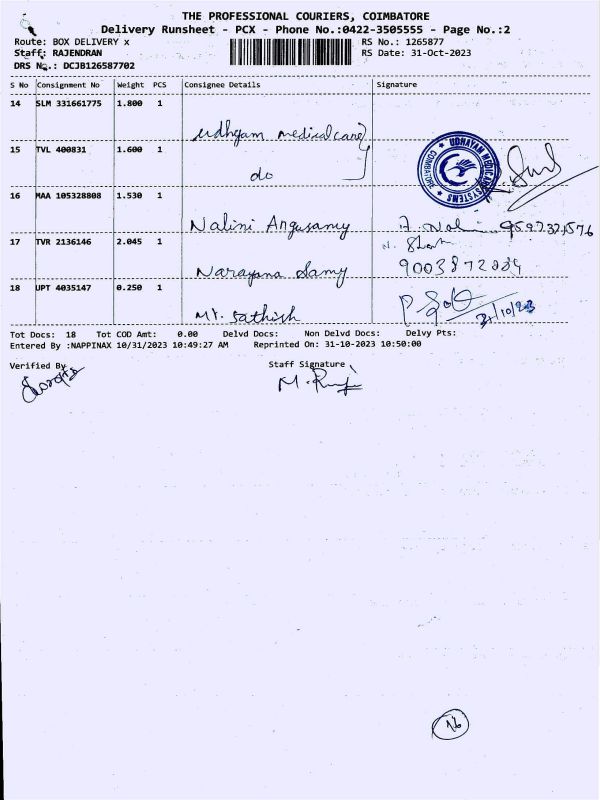 THE PROFESSIONAL COURIERS, COIMBATORE
Delivery Runsheet - PCX - Phone No.:0422-3505555 - Page No.:2
Route: BOX DELIVERY x RS No.: 1265877
Staff: RAJENDRAN RS Date: 31-Oct-2023
DRS No.: DCJB126587702
S No Consignment No Weight PCS Consignee Details Signature
14 SLM 331661775 1.800 1
udhyam medical care
15 TVL 400831 1.600 1
do
UDHAYAM MEDICARE SYSTEMS COIMBATORE
16 MAA 105328808 1.530 1
Nalini Angusamy
17 TVR 2136146 2.045 1
Narayana Samy
18 UPT 4035147 0.250 1
Mr. Sathish 31/10/23
Tot Docs: 18 Tot COD Amt: 0.00 Delvd Docs: Non Delvd Docs: Delvy Pts:
Entered By :NAPPINAX 10/31/2023 10:49:27 AM Reprinted On: 31-10-2023 10:50:00
Verified By Staff Signature
16